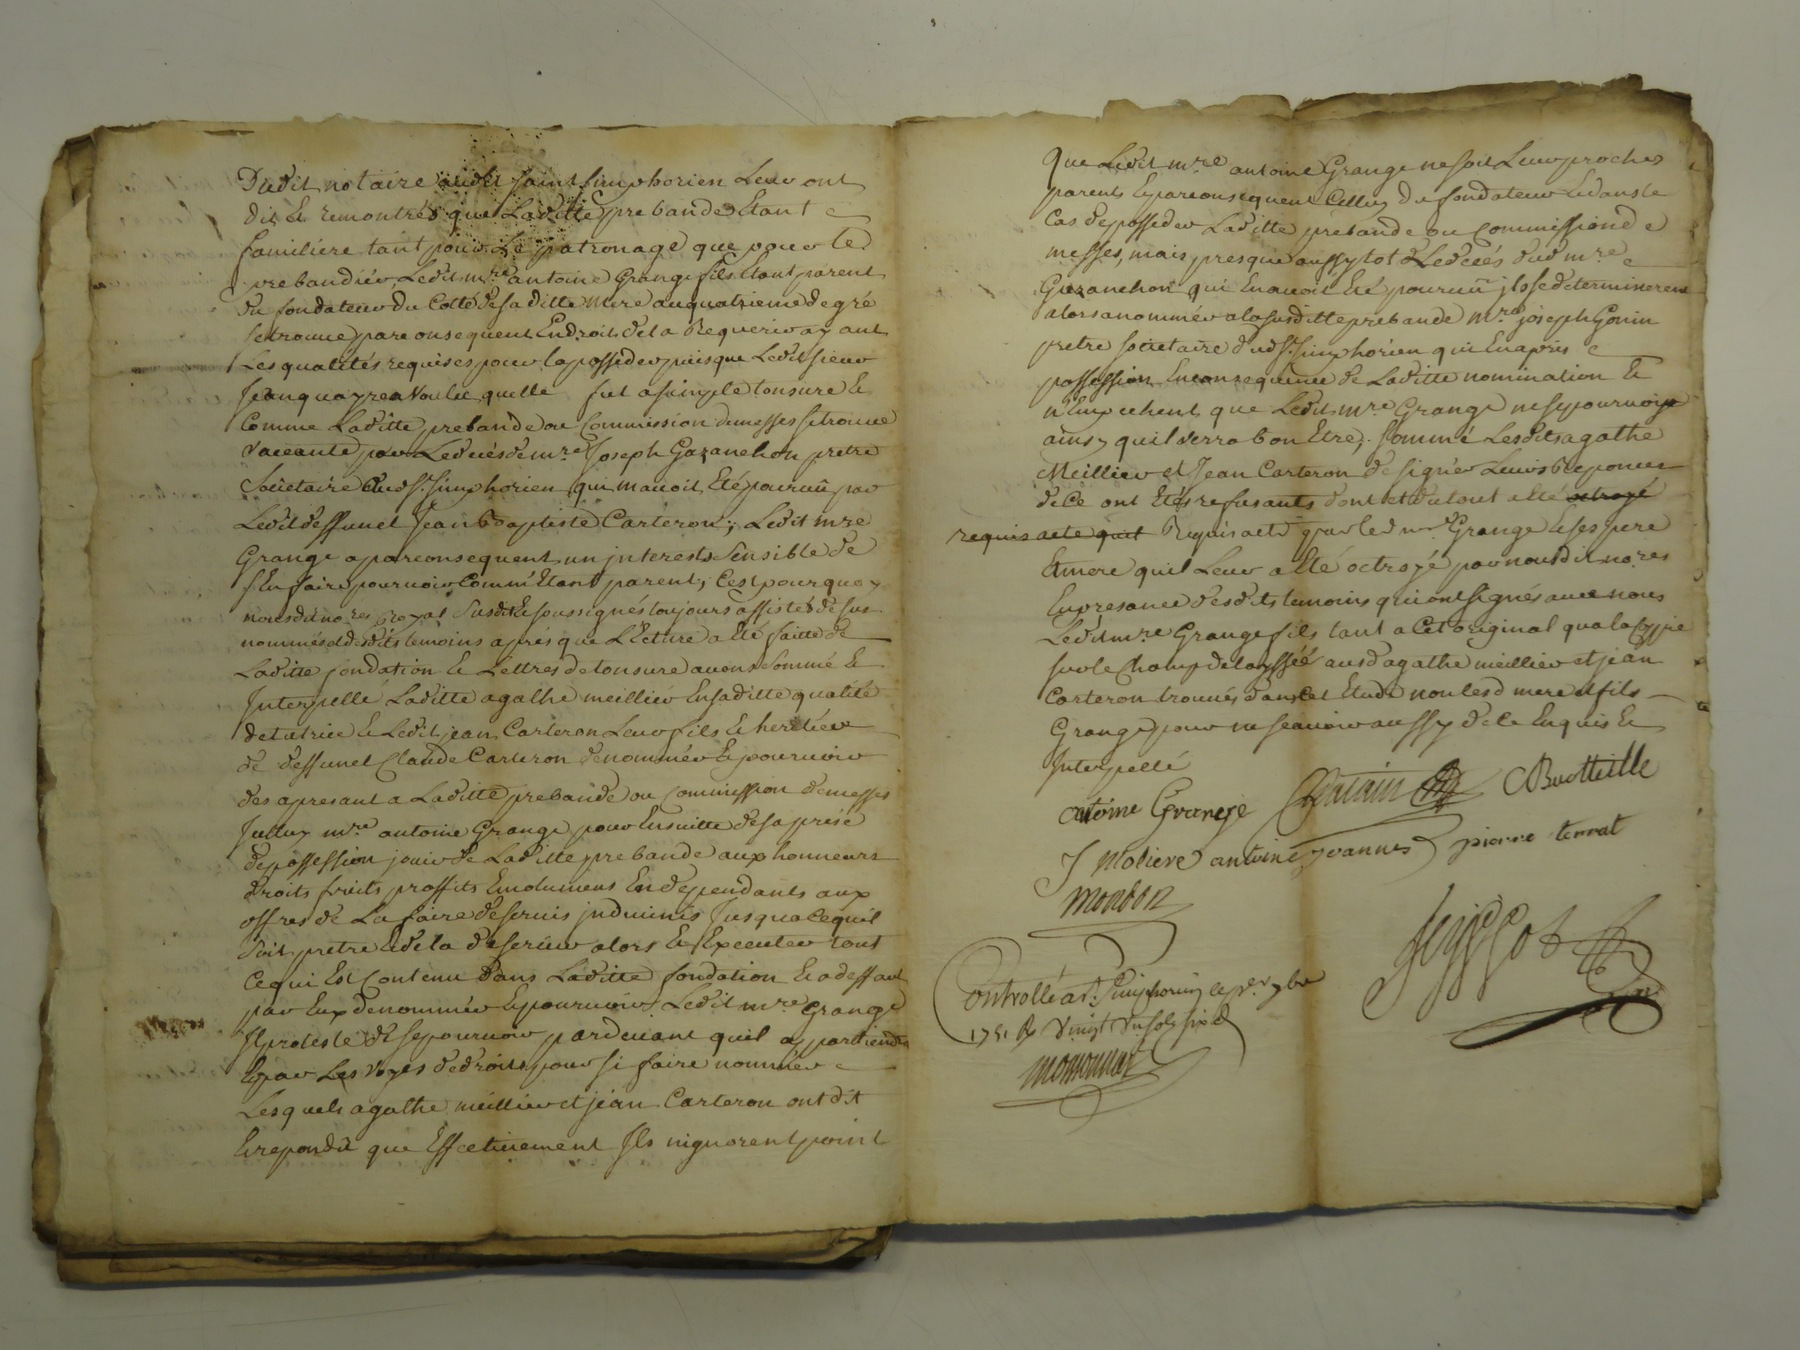 Dudit notaire audit saint Simphorien Leur ont
dit Et remontrés que Laditte prebande Etant
familiére tant pour Le patronage que pour le
prebandiér, Ledit mre antoine Grange fils Etant parent
du fondateur du Cotté de sa ditte mere au quatrieme degré
se trouve par consequent En droit de la Requerir ayant
Les qualités requises pour la posseder puisque Ledit sieur
Jean qua voulu quelle fut a simple tonsure Et
Comme Laditte prebande ou Commission de messes se trouve
vaccante par Le décés de mre Joseph Gazanchon pretre
Societaire dud St Simphorien qui m'auoit Eté pouruû par
Ledit deffunct Jean baptiste Carteron; Ledit mre
Grange a par consequent un interests Sensible de
s'En faire pouruoir Comm' Etant parent; C'est pour quoy
nousdit nore Royal Susdit Et soussignés toujours assistés de sus
nommés et desdits temoins aprés que L'Ecture a Eté faitte de
Laditte fondation Et Lettres de tonsure auons Sommé Et
Interpellé Laditte agathe meilliér En saditte qualité
de tutrice Et Ledit jean Carteron Leur fils Et heritiér
de deffunct Claude Carteron de nommér Et pouruoir
des apresant a Laditte prebande ou Commission de messes
Icelluy mre antoine Grange pour En suitte de sa prise
de possession jouir de Laditte prebande aux honneurs
droits fruits proffits Emolumens En dependants aux
offres de La faire déseruir jnduinis Jusqua Cequil
soit pretre Et de la deseruir alors Et Executer tout
Cequi Est Contenu dans Laditte fondation Et a deffaut
par Eux de nommér Et pouruoir Ledit mre Grange
Il proteste de se pouruoir par deuant quil appartiendra
Et par Les voyes de droits pour si faire nommér
Lesquels agathe meilliér et jean Carteron ont dit
Et repondû que Effectiuement Ils nignorent point
Que Ledit mre antoine Grange ne soit Leur proches
parents Et par consequent Celluy du fondateur Et dans le
Cas de posseder Laditte prebande ou Commission de
messes, mais presque aussy tot Le décés dud mre
Gazanchon qui En auoit Eté pouruû jls se determinerent
alors a nommér a la susditte prebande mre joseph Gonin
pretre societaire dud St Simphorien qui En a pris
possession En consequence de Laditte nomination Et
n'Empechent que Ledit mre Grange ne se pouruoije
ainsy quil verra bon Etre; Sommé Lesdits agathe
Meilliér et Jean Carteron de signér Leurs Reponces
de Ce ont Etés refusants dont et du tout a Eté octroyé
requis acte quil Requis acte par led mre Grange Et ses pere
Et mere quil Leur a Eté octroyé par nousdit nores
En presance desdits temoins qui ont signés auec nous
Ledit mre Grange fils tant a Cet original qua la Coppie
sur le Champ delayssée ausd agathe meilliér et jean
Carteron trouués dans Cet Etude non lesd mere et fils
Grange pour ne scauoir aussy de le Enquis Et
Interpellé
antoine Grange Chatain CBuotteille
J Moliere antoine joannes pierre ternat
mondon
Controllé a St Simphorien le per 9bre
1751 Rs Vingt un sols six d
monnat